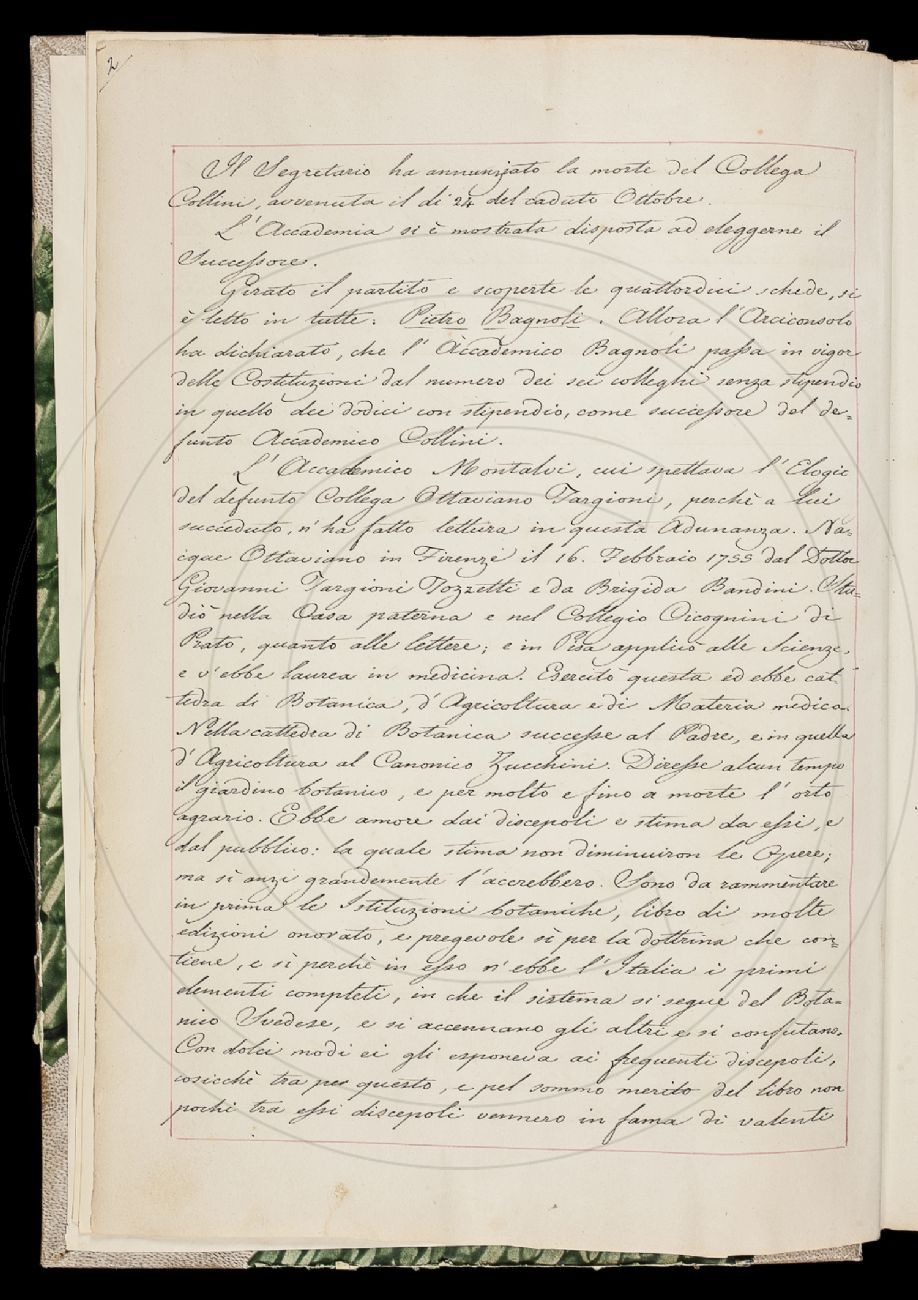 2
Il Segretario ha annunziato la morte del Collega
Collini, avvenuta il dì 24 del caduto Ottobre.
L'Accademia si è mostrata disposta ad eleggerne il
Successore.
Girato il partito e scoperte le quattordici schede, si
è letto in tutte: Pietro Bagnoli. Allora l'Arciconsolo
ha dichiarato, che l'Accademico Bagnoli passa in vigor
delle Costituzioni dal numero dei sei colleghi senza stipendio
in quello dei dodici con stipendio, come successore del de=
funto Accademico Collini.
L'Accademico Montalvi, cui spettava l'Elogio
del defunto Collega Ottaviano Targioni, perchè a lui
succeduto, n'ha fatto lettura in questa Adunanza. Na=
cque Ottaviano in Firenze il 16. Febbraio 1755 dal Dottor
Giovanni Targioni Tozzetti e da Brigida Bandini. Stu=
diò nella Casa paterna e nel Collegio Cicognini di
Prato, quanto alle lettere; e in Pisa applicò alle Scienze,
e v'ebbe laurea in medicina. Esercitò questa ed ebbe cat=
tedra di Botanica, d'Agricoltura e di Materia medica.
Nella cattedra di Botanica successe al Padre, e in quella
d'Agricoltura al Canonico Zucchini. Diresse alcun tempo
il giardino botanico, e per molto e fino a morte l'orto
agrario. Ebbe amore dai discepoli e stima da essi, e
dal pubblico: la quale stima non diminuiron le Opere;
ma sì anzi grandemente l'accrebbero. Sono da rammentare
in prima le Istituzioni botaniche, libro di molte
edizioni onorato, e pregevole sì per la dottrina che con=
tiene, e sì perchè in esso n'ebbe l'Italia i primi
elementi completi, in che il sistema si segue del Bota=
nico Svedese, e si accennano gli altri e si confutano.
Con dolci modi ei gli esponeva ai frequenti discepoli,
cosicchè tra per questo, e pel sommo merito del libro non
pochi tra essi discepoli vennero in fama di valenti